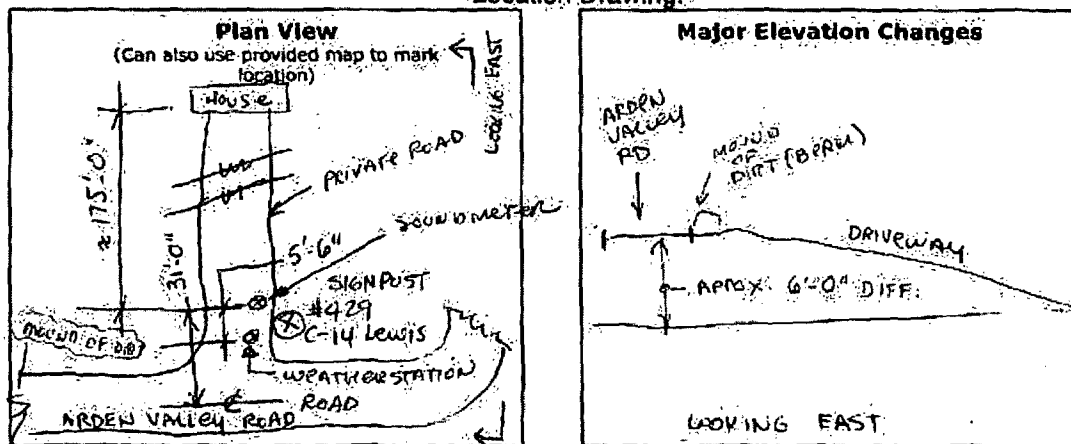 Location Drawing:
Plan View
(Can also use provided map to mark
location)
LOOKING EAST
HOUSE
≈ 175'-0"
PRIVATE ROAD
SOUNDMETER
5'-6"
31'-0"
SIGNPOST
#429
C-14 Lewis
MOUND OF DIRT
WEATHERSTATION
ROAD
ARDEN VALLEY ROAD
Major Elevation Changes
ARDEN
VALLEY
RD
MOUND
OF
DIRT (BERM)
DRIVEWAY
APROX. 6'-0" DIFF.
LOOKING EAST